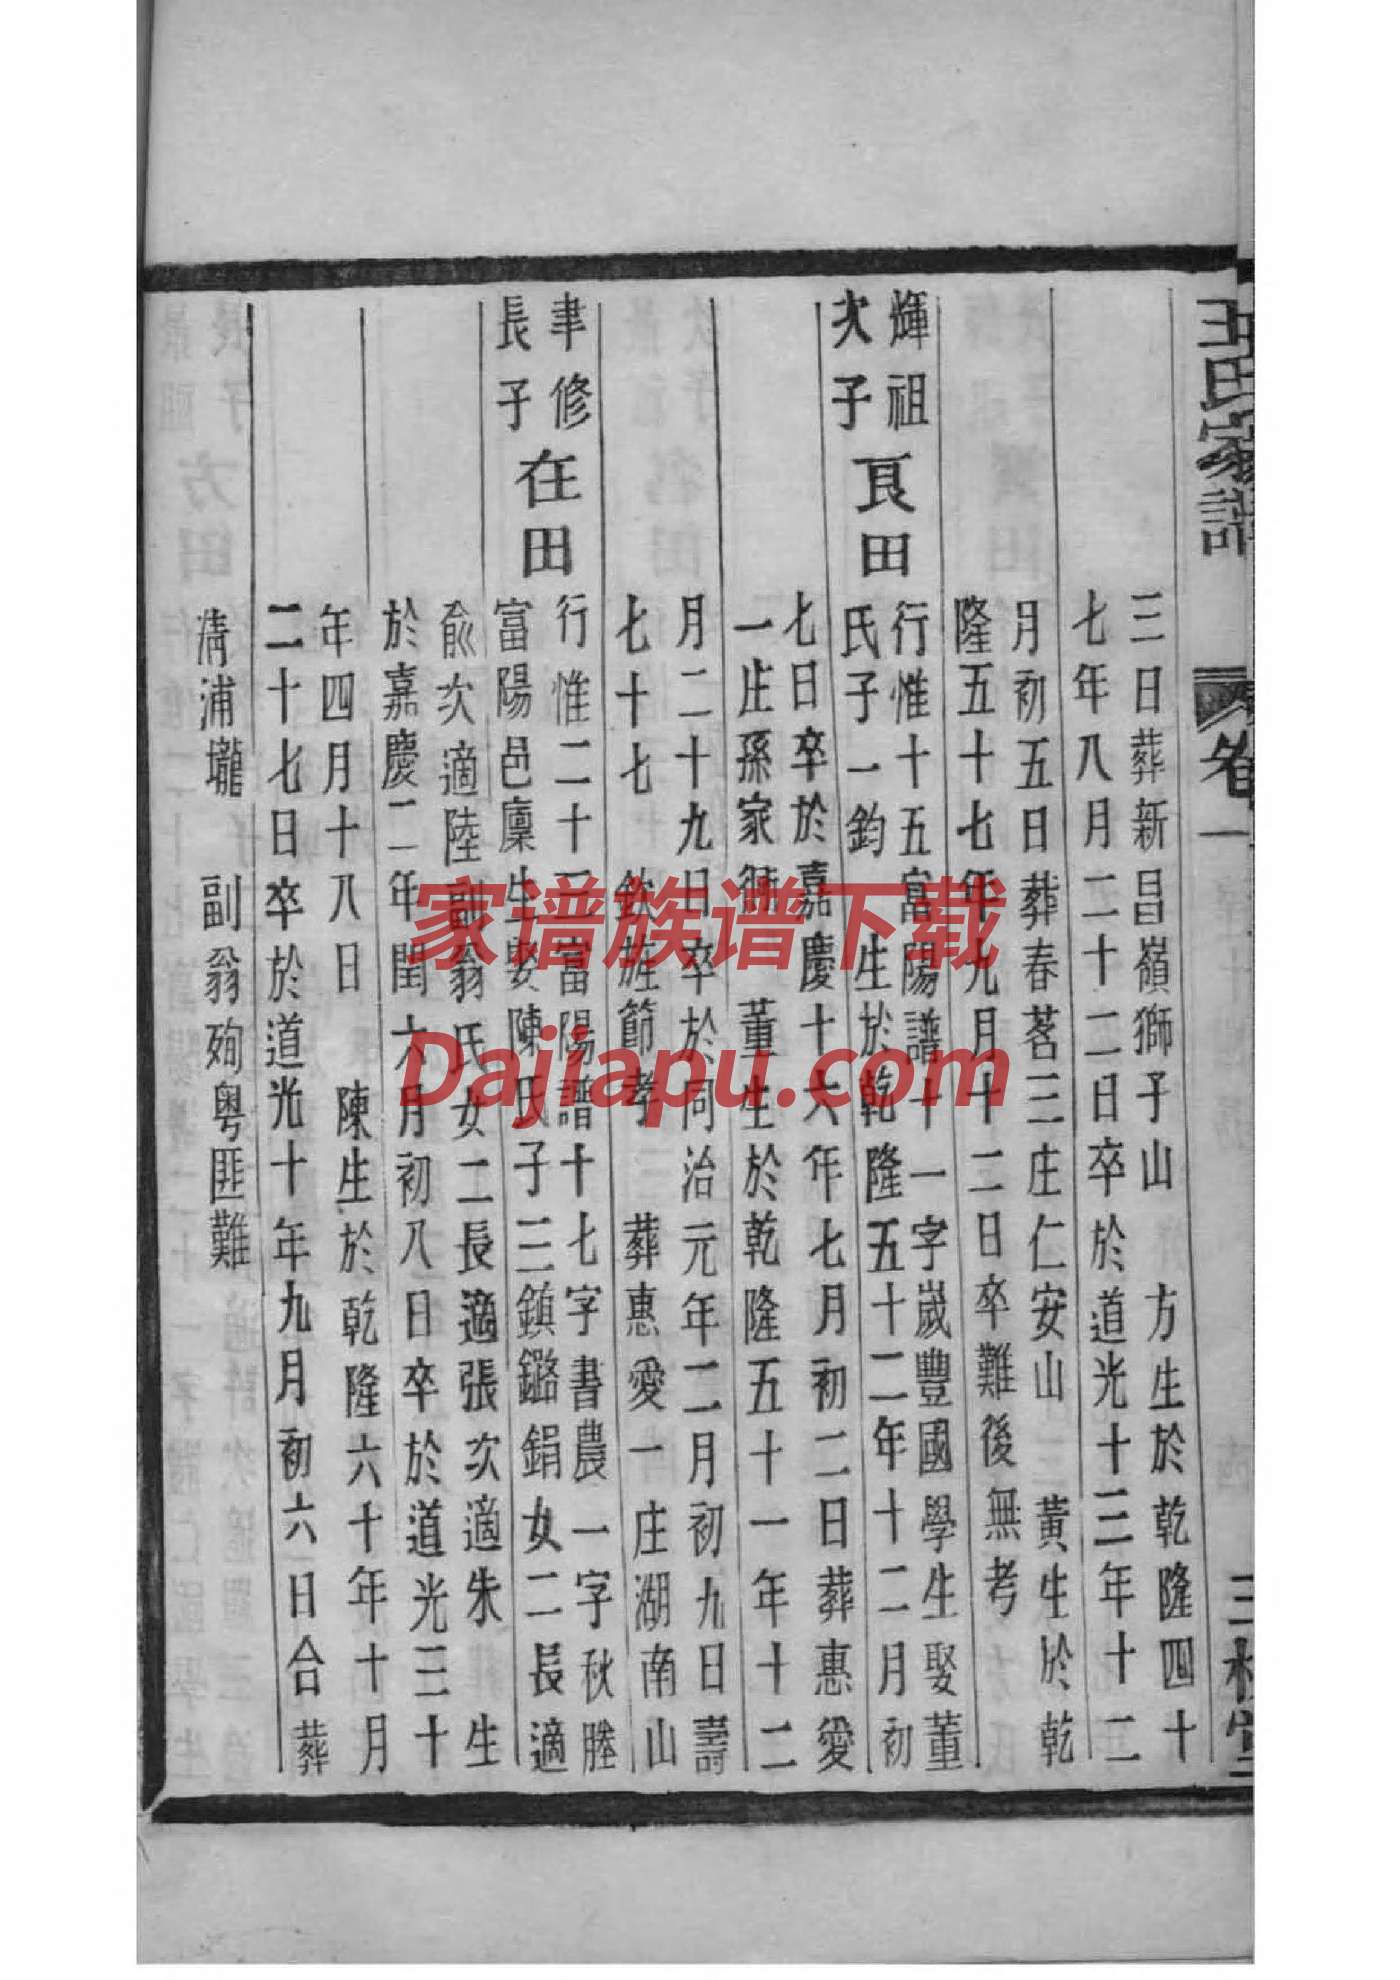 王氏家譜
卷一
三槐堂
三日葬新昌嶺獅子山 方生於乾隆四十
七年八月二十二日卒於道光十三年十二
月初五日葬春茗三庄仁安山 黃生於乾
隆五十七年九月十二日卒難後無考
輝祖
次子
良田
行惟十五富陽譜十一字嵗豐國學生娶董
氏子一鈞 生於乾隆五十二年十二月初
七日卒於嘉慶十六年七月初二日葬惠愛
一庄孫家 董生於乾隆五十一年十二
月二十九日卒於同治元年二月初九日壽
七十七 欽旌節孝 葬惠愛一庄湖南山
聿修
長子
在田
行惟二十三富陽譜十七字書農一字秋塍
富陽邑廩生娶陳氏子三鎮鏴鋗女二長適
俞次適陸副翁氏女二長適張次適朱 生
於嘉慶二年閏六月初八日卒於道光三十
年四月十八日 陳生於乾隆六十年十月
二十七日卒於道光十年九月初六日合葬
清浦壠 副翁殉粵匪難
家谱族谱下载
Dajiapu.com